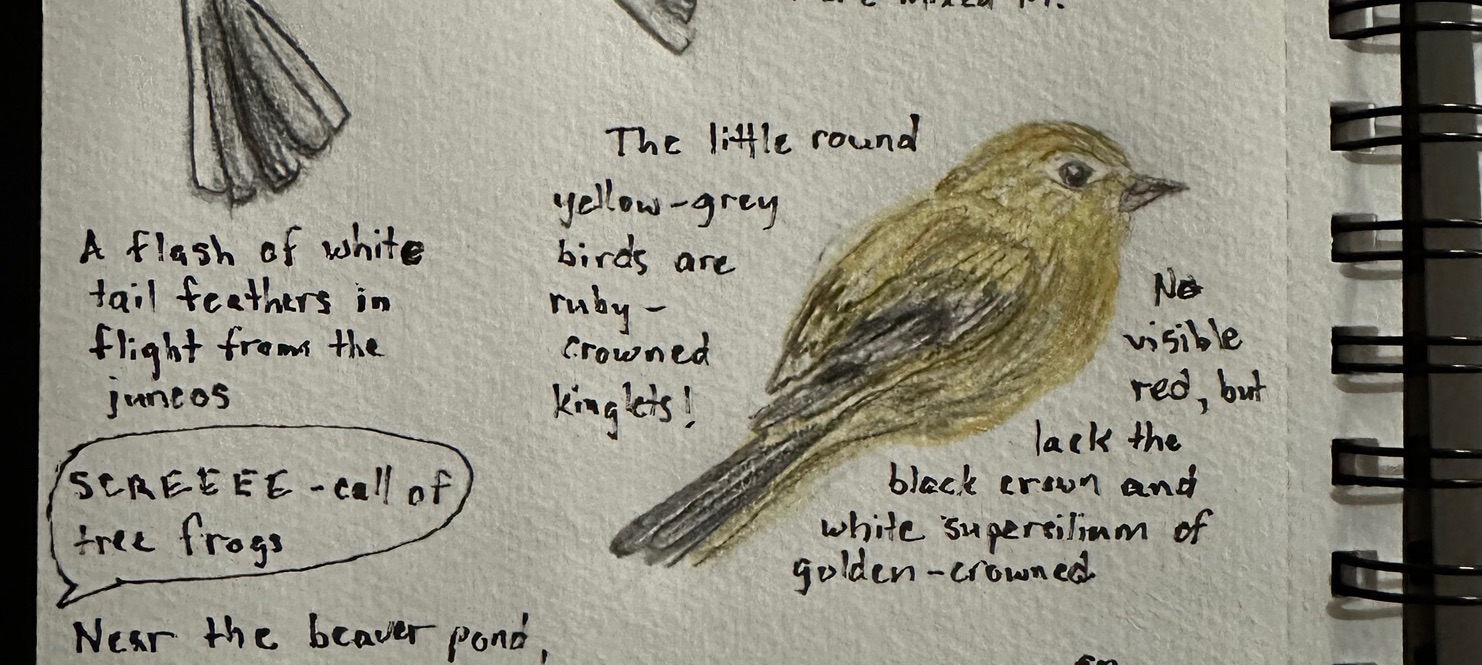 mixed in.
A flash of white
tail feathers in
flight from the
juncos
SCREEEE - call of
tree frogs
Near the beaver pond,
The little round
yellow-grey
birds are
ruby-
crowned
kinglets!
No
visible
red, but
lack the
black crown and
white supercilium of
golden-crowned